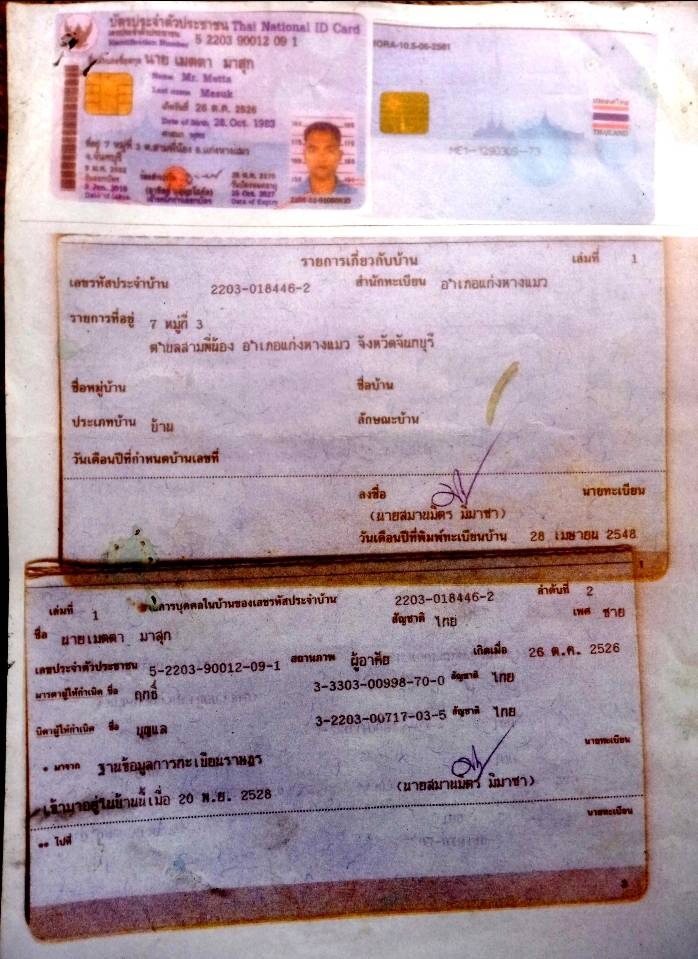 บัตรประจำตัวประชาชน Thai National ID Card
เลขประจำตัวประชาชน
Identification Number 5 2203 90012 09 1
นาย เมตตา มาสุก
Name Mr. Metta
Last name Masuk
เกิดวันที่ 26 ต.ค. 2526
Date of Birth 26 Oct. 1983
ที่อยู่ 7 หมู่ที่ 3 ต.สามพี่น้อง อ.แก่งหางแมว
จ.จันทบุรี
Date of Issue
Date of Expiry
ประเทศไทย
THAILAND
รายการเกี่ยวกับบ้าน เล่มที่ 1
เลขรหัสประจำบ้าน 2203-018446-2 สำนักทะเบียน อำเภอแก่งหางแมว
รายการที่อยู่ 7 หมู่ที่ 3
ตำบลสามพี่น้อง อำเภอแก่งหางแมว จังหวัดจันทบุรี
ชื่อหมู่บ้าน ชื่อบ้าน
ประเภทบ้าน บ้าน ลักษณะบ้าน
วันเดือนปีที่กำหนดบ้านเลขที่
ลงชื่อ นายทะเบียน
(นายสมานมิตร มิมาชา)
วันเดือนปีที่พิมพ์ทะเบียนบ้าน 28 เมษายน 2548
1
เล่มที่ 1 รายการบุคคลในบ้านของเลขรหัสประจำบ้าน 2203-018446-2 ลำดับที่ 2
ชื่อ นายเมตตา มาสุก สัญชาติ ไทย เพศ ชาย
เลขประจำตัวประชาชน 5-2203-90012-09-1 สถานภาพ ผู้อาศัย เกิดเมื่อ 26 ต.ค. 2526
มารดาผู้ให้กำเนิด ชื่อ ฤทธิ์ 3-3303-00998-70-0 สัญชาติ ไทย
บิดาผู้ให้กำเนิด ชื่อ บุญแล 3-2203-00717-03-5 สัญชาติ ไทย
* มาจาก ฐานข้อมูลการทะเบียนราษฎร นายทะเบียน
(นายสมานมิตร มิมาชา)
เข้ามาอยู่ในบ้านนี้เมื่อ 20 พ.ย. 2528
นายทะเบียน
** ไปที่